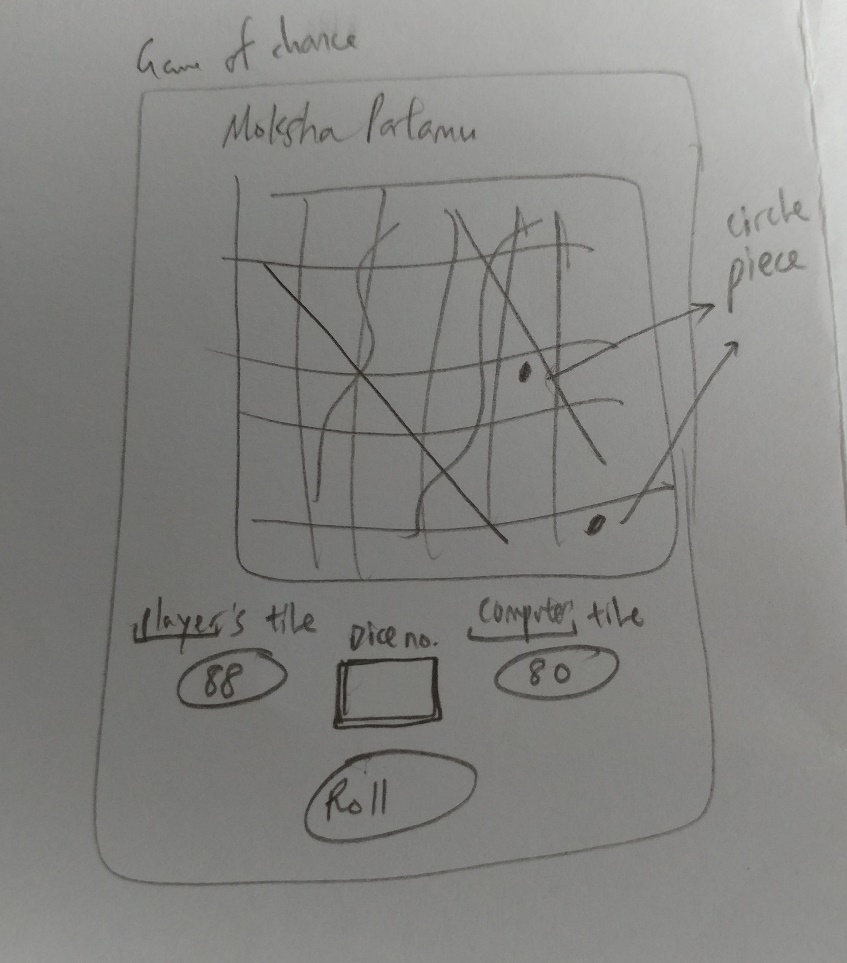 Game of chance
Moksha Patamu
circle
piece
player's tile
Dice no.
Computer tile
88
80
Roll